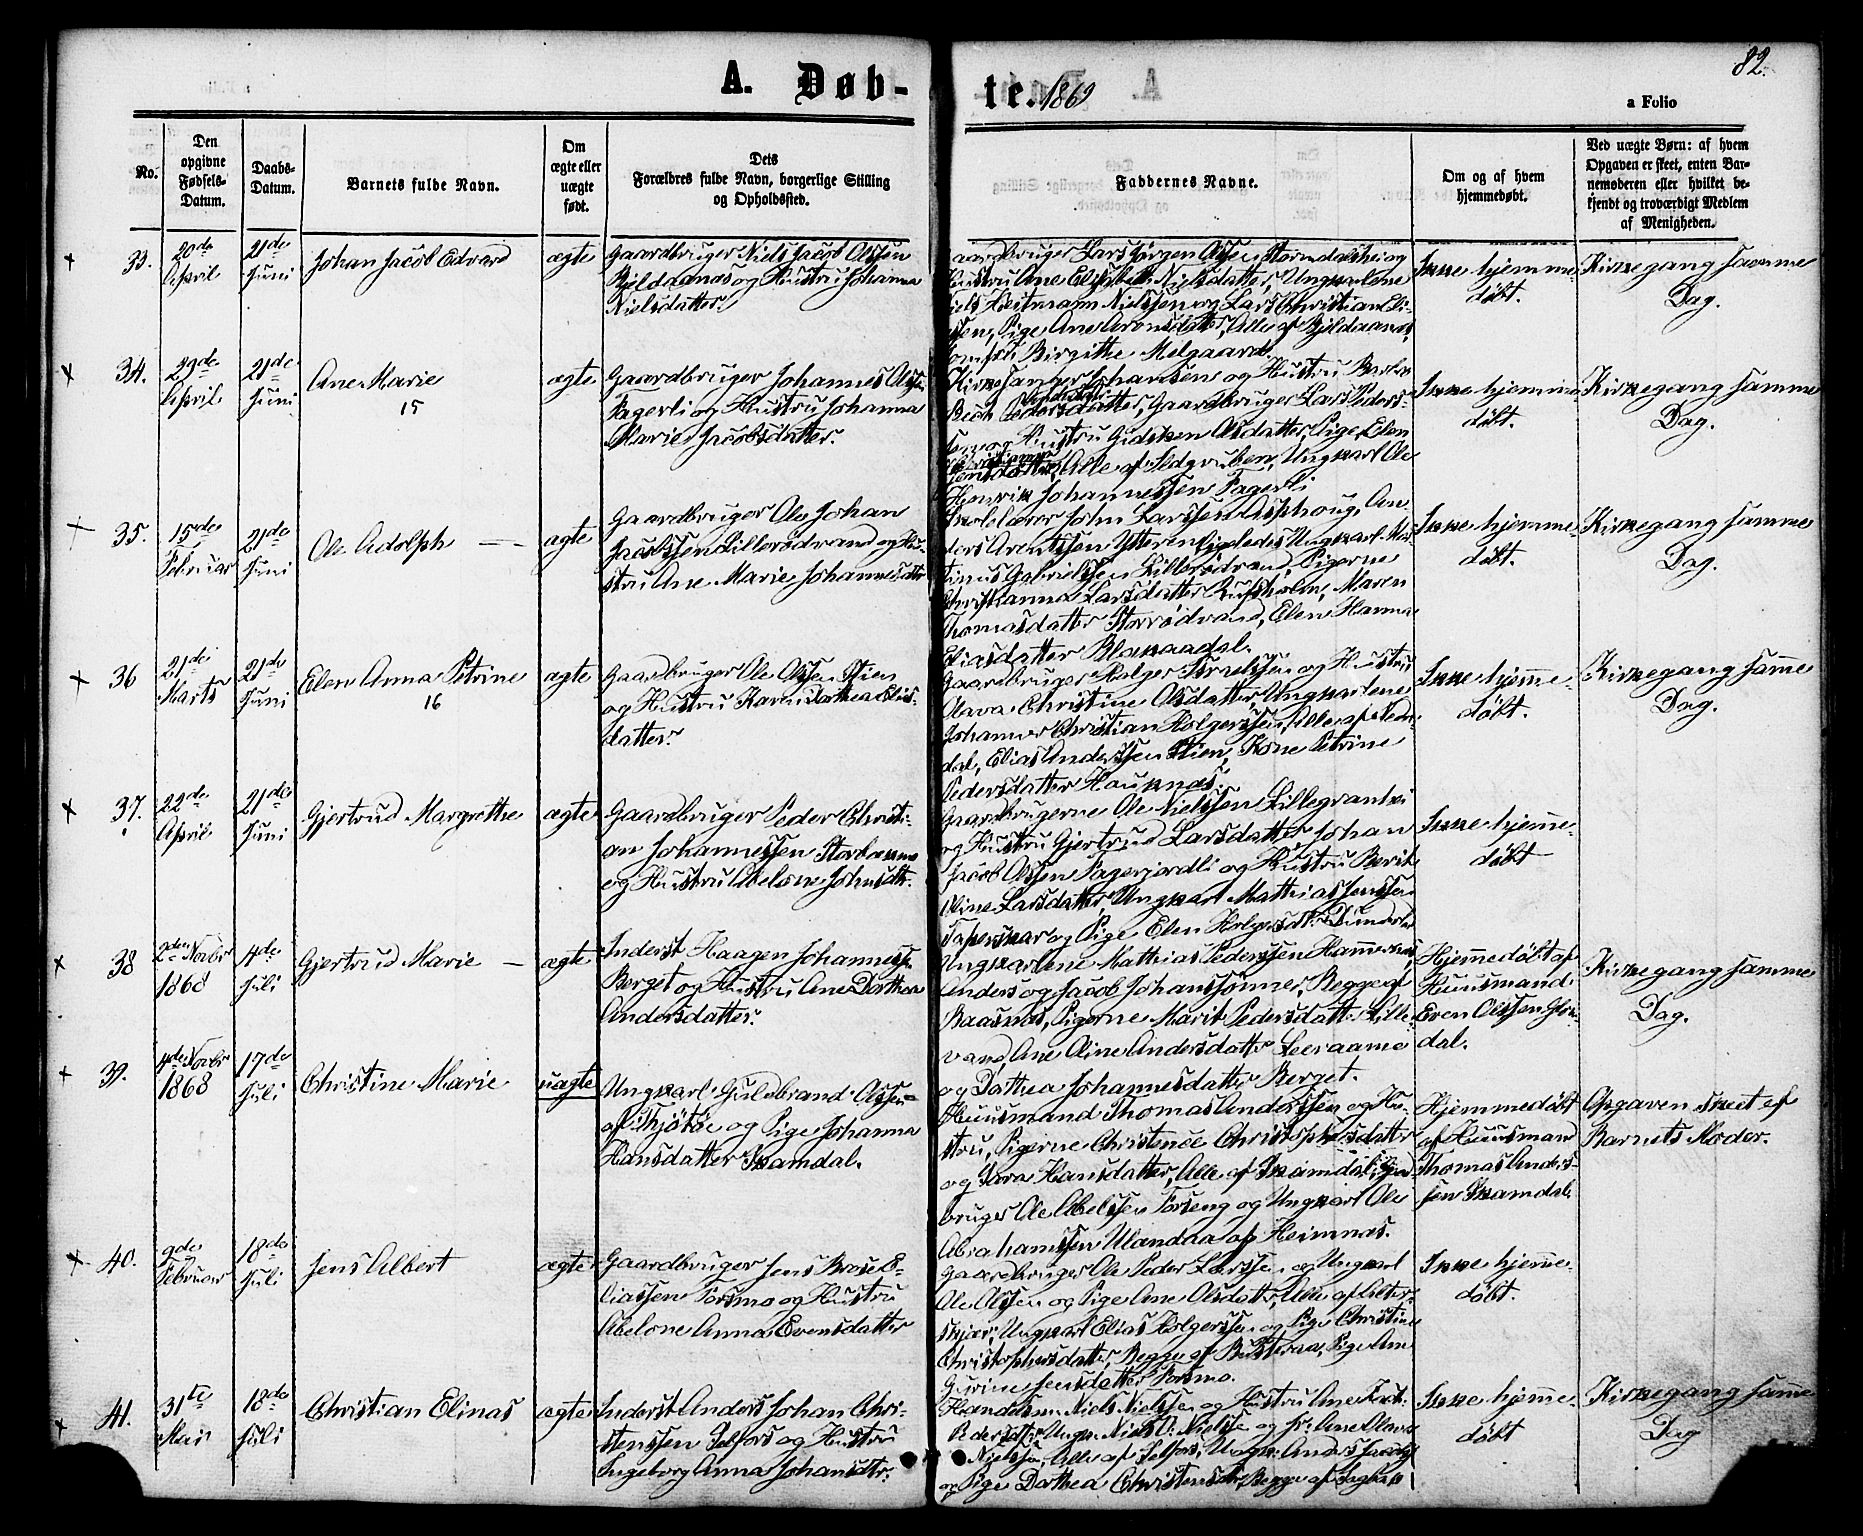 82.
A. Døb-
te. 1869
a Folio
No.
Den
opgivne
Fødsels-
Datum.
Daabs-
Datum.
Barnets fulde Navn.
Om
ægte eller
uægte
født.
Dets
Forældres fulde Navn, borgerlige Stilling
og Opholdssted.
Faddernes Navne.
Om og af hvem
hjemmedøbt.
Ved uægte Børn: af hvem
Opgaven er skeet, enten Bar-
nemoderen eller hvilket be-
kjendt og troværdigt Medlem
af Menigheden.
33.
20de
April
21de
Juni
Johan Jacob Edvard
ægte
Gaardbruger Niels Jacob Olssen
Bjeldaanæs og Hustru Johanna
Nielsdatter.
Gaardbruger Lars Jørgen Olssen Stormdalshei og
Hustru Ane Elisabeth Nielsdatter, Ungkarlene
Niels Nielssen og Lars Christian Eli-
assen, Pige Ane Arensdatter, Alle af Bjeldaanæs,
Jomfru Birgithe Melgaard.
Ikke hjemme
døbt.
Kirkegang samme
Dag.
34.
29de
April
21de
Juni
Ane Marie
15
ægte
Gaardbruger Johannes Olssen
Fagerli og Hustru Johanna
Marie Jacobsdatter.
Kirkesanger Johansen og Hustru
Pedersdatter, Gaardbruger Lars Peders-
sen og Hustru Gidsken Olsdatter, Pige Elen
Alle af Selgruben, Ungkarl Ole
Henrik Johannessen Fagerli
Ikke hjemme
døbt.
Kirkegang samme
Dag.
35.
15de
Februar
21de
Juni
Ole Adolph
ægte
Gaardbruger Ole Johan
Jacobssen Lillerødvand og Hu-
stru Ane Marie Johannesdatter
Skolelærer John Larssen Asphoug, An-
ders Arentssen Ytteren ligeledes Ungkarl Mar-
tinus Gabrielssen Lillerødvand, Pigerne
Christianna Larsdatter Rufsholm, Maren
Thomasdatter Storrødvand, Elen Hanna
Eliasdatter Blakaadal.
Ikke hjemme-
døbt.
Kirkegang samme
Dag.
36
21de
Marts
21de
Juni
Elen Anna Petrine
16
ægte
Gaardbruger Ole Olssen Stien
og Hustru Karen Dorthea Elias-
datter.
Gaardbruger Holger Israelssen og Hustru
Olava Christine Olsdatter, Ungkarlene
Johannes Christian Holgerssen, Alle af
dal, Elias Anderssen Stien, Kone Petrine
Pedersdatter Hauknæs.
Ikke hjemme-
døbt.
Kirkegang samme
Dag.
37.
22de
April
21de
Juni
Gjertrud Margrethe
ægte
Gaardbruger Peder Christi-
an Johannessen
og Hustru Abelone Johnsdtr.
Gaardbrugerne Ole Nielssen
og Hustru Gjertrud Larsdatter, Johan
Jacob Olssen Fagerjordli og Hustru Berit
Oline Larsdatter, Ungkarl Mathias Jenssen
og Pige Elen Holgersdtr.
Ikke hjemme-
døbt
38
2den Novbr
1868
4de
Juli
Gjertrud Marie
ægte
Inderst Haagen Johannessen
Berget og Hustru Ane Dorthea
Andersdatter.
Ungkarlene Mathias Pederssen Hammernæs,
Anders og Jacob Johanssønner, Begge af
Baasnæs, Pigerne Marit Pedersdatter Lille-
vand, Ane Oline Andersdatter
og Dorthea Johannesdatter Berget.
Hjemmedøbt af
Huusmand
Even Olssen
dal.
Kirkegang samme
Dag.
39.
4de Novbr
1868
17de
Juli
Christine Marie
uægte
Ungkarl Guldbrand Olssen
af Thjøtøe og Pige Johanna
Hansdatter Skamdal.
Huusmand Thomas Anderssen og Hu-
stru, Pigerne Christence Christophersdatter
og Sara Hansdatter, Alle af Skamdal, Gaard-
bruger Ole Abelssen Forseng og Ungkarl Ole
Abrahamssen Ulandaa af Hemnæs.
Hjemmedøbt
af Huusmand
Thomas Anders-
sen Skamdal.
Opgaven skeet af
Barnets Moder.
40.
9de
Februar
18de
Juli
Jens Albert
ægte
Gaardbruger Jens E-
liassen Forsmo og Hustru
Abelone Anna Evensdatter
Gaardbruger Ole Peder Larssen og Ungkarl
Ole Olssen og Pige Ane Olsdatter, Alle af Alter-
skjær, Ungkarl Elias Holgerssen og Pige Christine
Christophersdatter, Begge af Pige Ane
Gurine Jensdatter Forsmo.
Ikke hjemme-
døbt.
41.
31te
Mai
18de
Juli
Christian Elinas
ægte
Inderst Anders Johan Chri-
stenssen Selfors og Hustru
Ingeborg Anna Johansdtr.
Handelsm. Niels Nielssen og Hustru Ane
Pedersdatter, Ungk. Niels O. Nielssen og Ane Olava
Nielssen, Alle af Selfors, Ungk. Anders
og Pige Dorthea Christensdtr, Begge af
Ikke hjemme-
døbt
Kirkegang samme
Dag